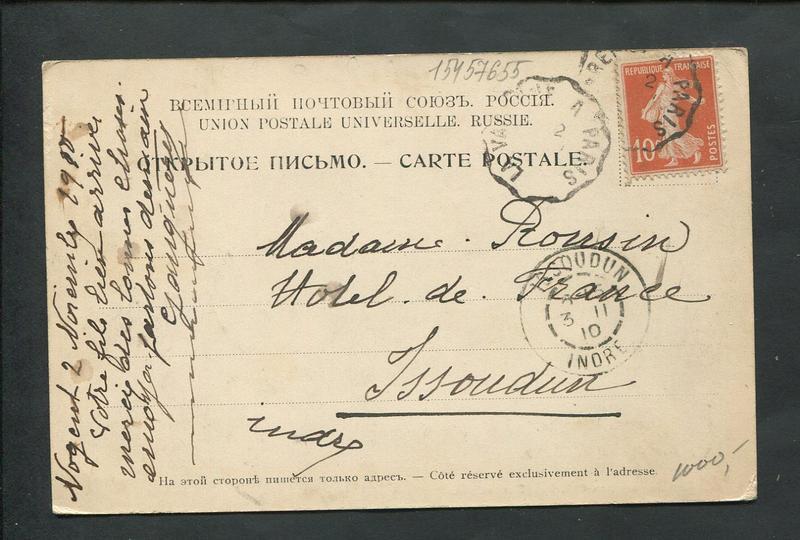 15457655
ВСЕМІРНЫЙ ПОЧТОВЫЙ СОЮЗЪ. РОССІЯ.
UNION POSTALE UNIVERSELLE. RUSSIE.
ОТКРЫТОЕ ПИСЬМО. — CARTE POSTALE.
REPUBLIQUE FRANÇAISE
10
POSTES
A PARIS
2
A PARIS
2
Madame Rousin
Hotel de France
Issoudun
indre
ISSOUDUN
3 11
10
INDRE
Nogent 2 Novembre
votre fils bien arrivé
merci des bonnes choses
partons demain
На этой сторонѣ пишется только адресъ. — Côté réservé exclusivement à l'adresse.
1000,-